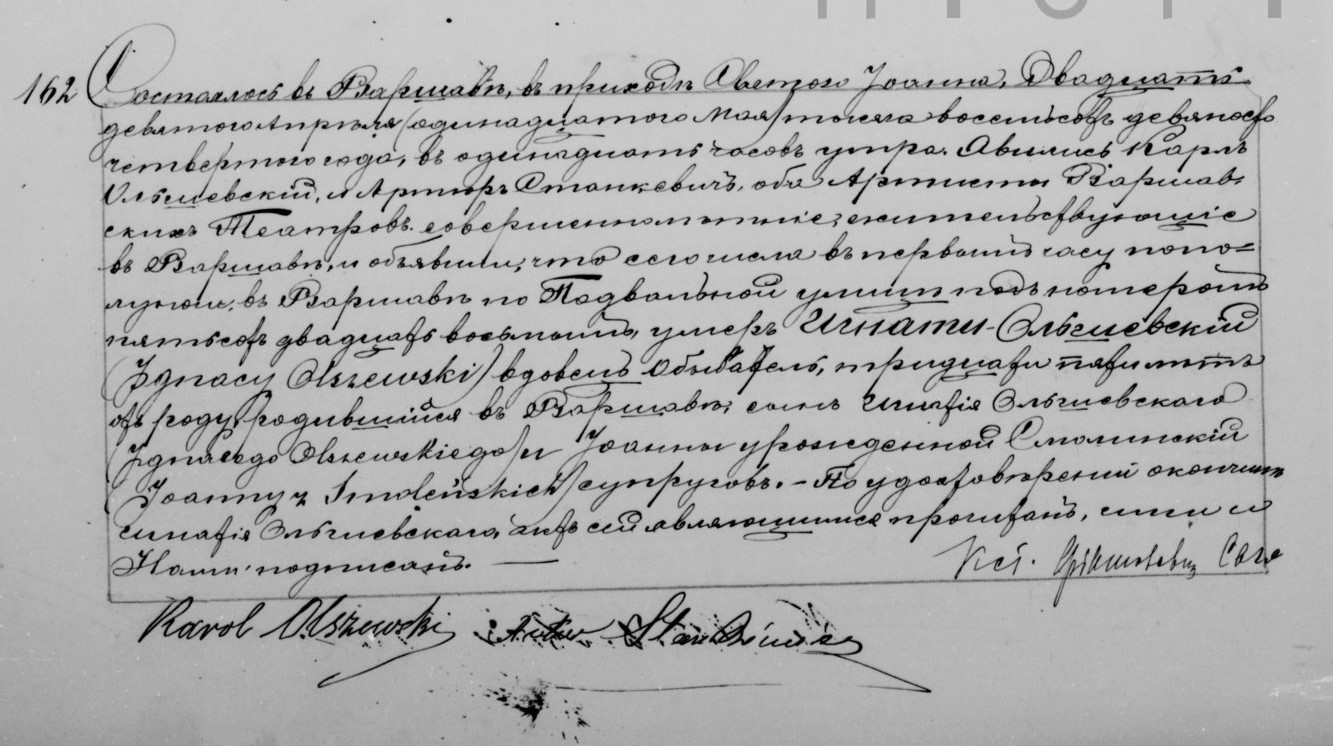 162 Состоялось въ Варшавѣ, въ приходѣ Святого Іоанна, Двадцать
девятого Апрѣля (одинадцатого Мая) тысяча восемьсотъ девяносто
четвертого года, въ одинадцать часовъ утра. Явились Карлъ
Ольшевскій, и Артюръ Станкевичъ, оба Артисты Варшав-
скихъ Театровъ. совершеннолѣтніе, жительствующіе
въ Варшавѣ, и объявили, что сего числа въ первомъ часу попо=
луночи, въ Варшавѣ по Подвальной улицѣ подъ номеромъ
пятьсотъ двадцать восьмымъ, умеръ Игнатій Ольшевскій
(Ignacy Olszewski) вдовецъ Обыватель, тридцати пяти лѣтъ
отъ роду, родившійся въ Варшавѣ, сынъ Игнатія Ольшевскаго
(Ignacego Olszewskiego) и Іоанны урожденной Смолинскій
(Joanny z Smoleńskich) супруговъ. – По удостовѣреніи о кончинѣ
Игнатія Ольшевскаго, актъ сей являющимся прочитанъ, ими и
Нами подписанъ. —
Karol Olszewski Artur Stankiewicz